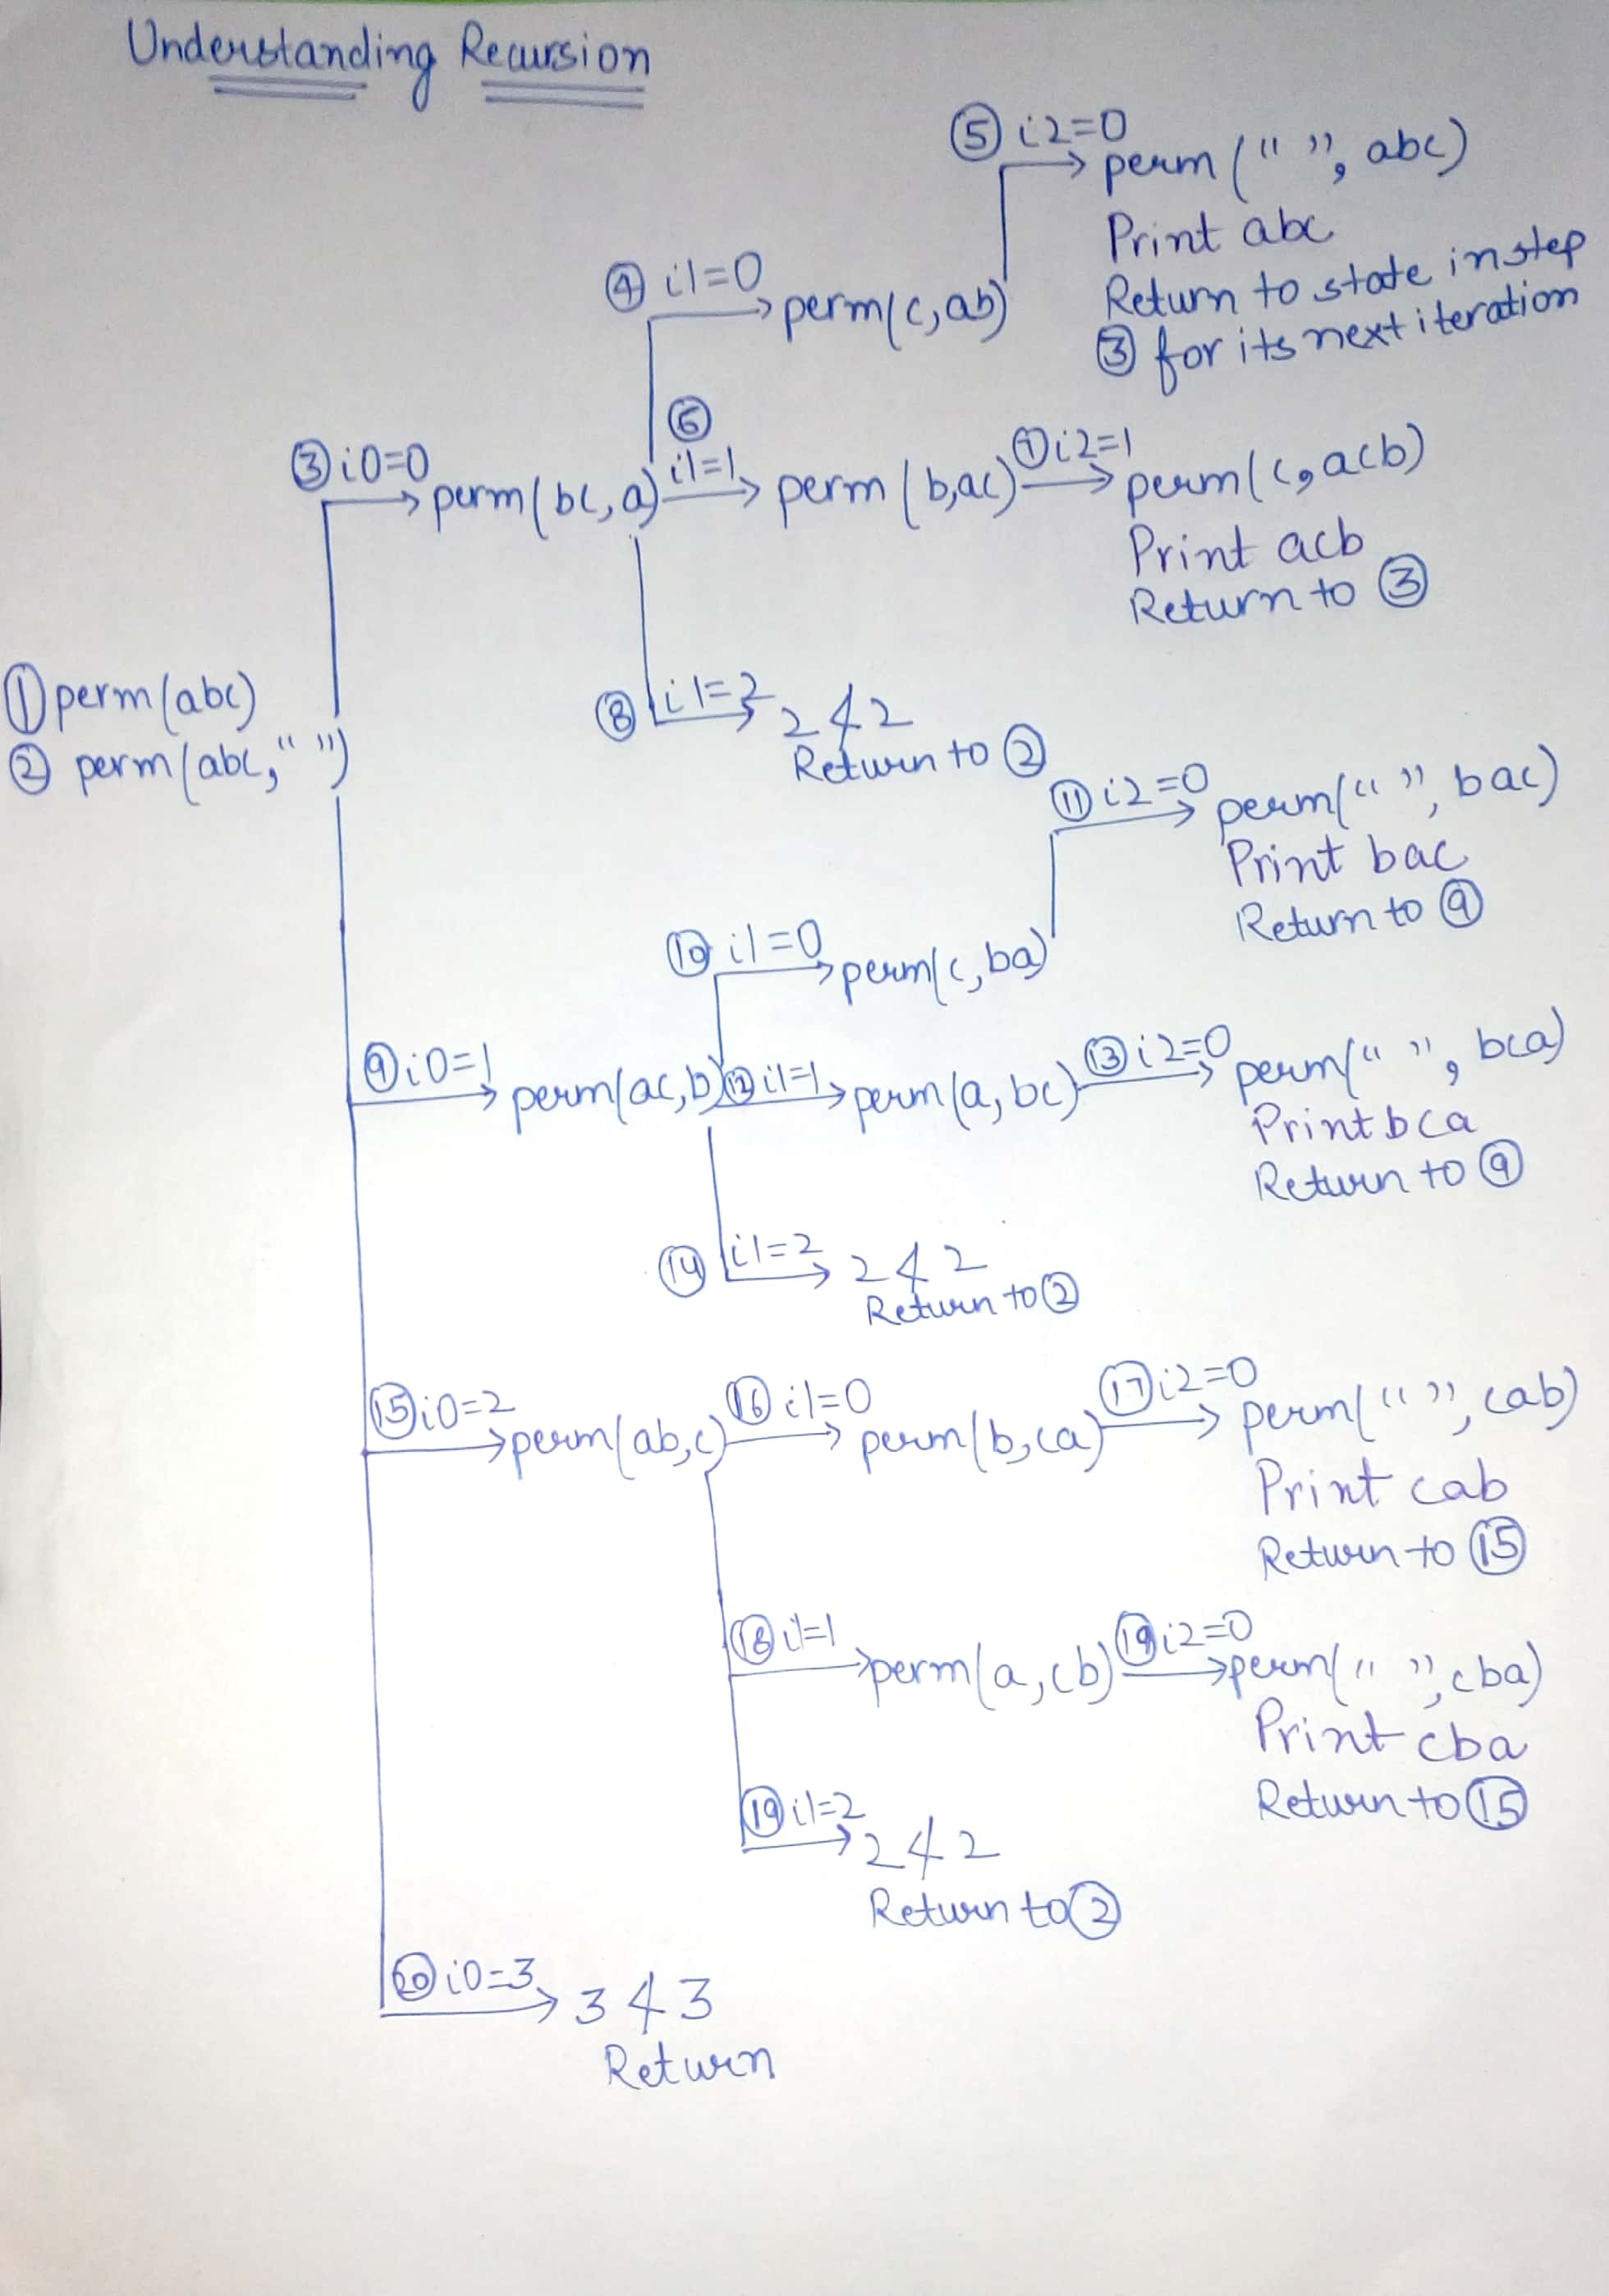 Understanding Recursion
⑤ i2=0
perm (" ", abc)
Print abc
Return to state in step
③ for its next iteration
④ i1=0
perm(c, ab)
⑥
③ i0=0
perm(bc, a) i1=1 perm (b,ac) ⑦ i2=1 perm(c, acb)
Print acb
Return to ③
① perm(abc)
② perm(abc, " ")
⑧ i1=2 2 ≮ 2
Return to ②
⑪ i2=0 perm(" ", bac)
Print bac
Return to ⑨
⑩ i1=0 perm(c, ba)
⑨ i0=1 perm(ac, b) ⑫ i1=1 perm(a, bc) ⑬ i2=0 perm(" ", bca)
Print bca
Return to ⑨
⑭ i1=2 2 ≮ 2
Return to ②
⑮ i0=2 perm(ab,c) ⑯ i1=0 perm(b,ca) ⑰ i2=0 perm(" ", cab)
Print cab
Return to ⑮
⑱ i1=1 perm(a, cb) ⑲ i2=0 perm(" ", cba)
Print cba
Return to ⑮
⑲ i1=2 2 ≮ 2
Return to ②
⑳ i0=3 3 ≮ 3
Return